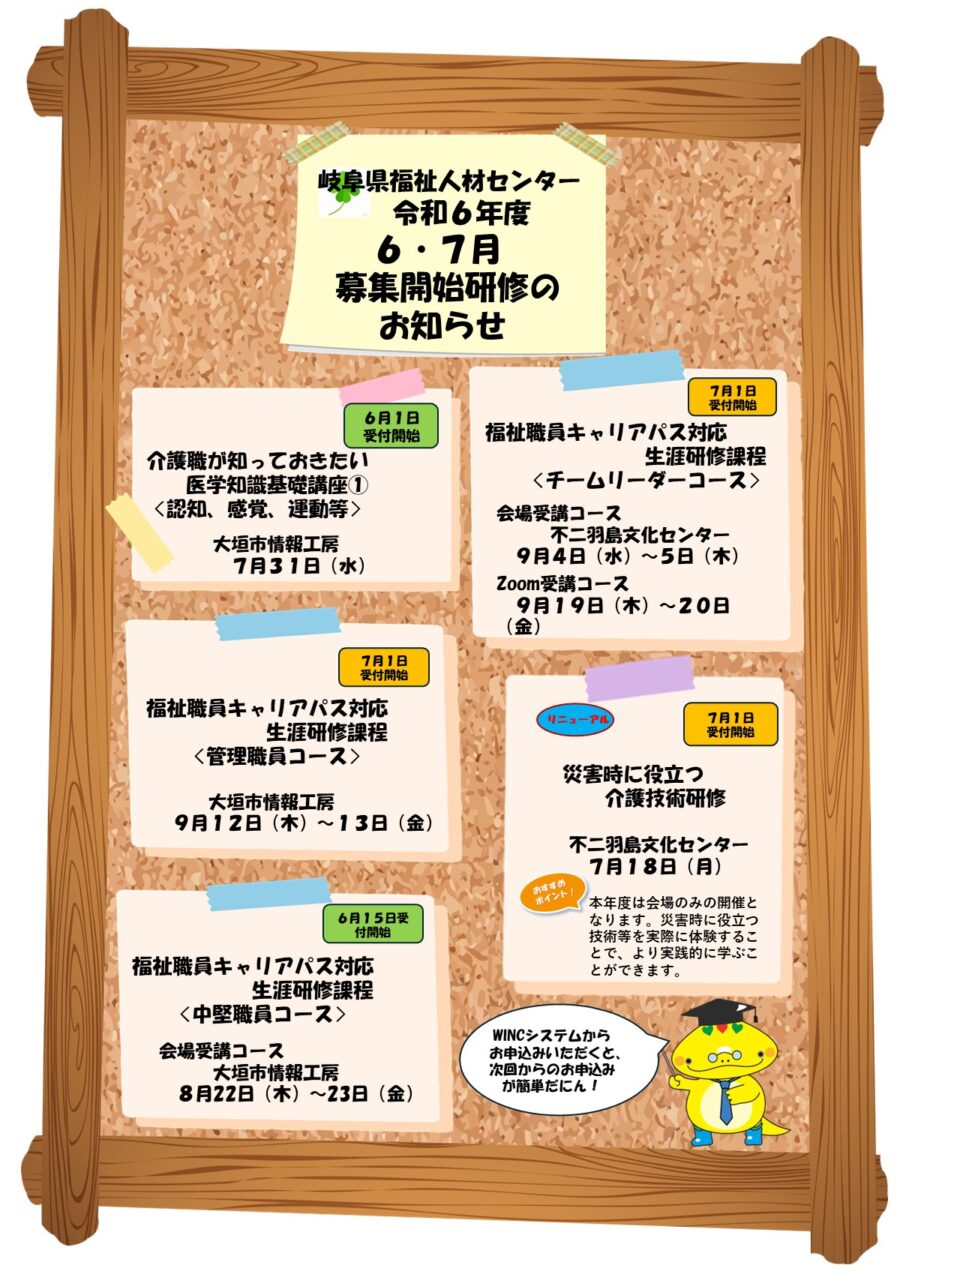 岐阜県福祉人材センター
令和６年度
６・７月
募集開始研修の
お知らせ
6月1日
受付開始
介護職が知っておきたい
医学知識基礎講座①
＜認知、感覚、運動等＞
大垣市情報工房
７月３１日（水）
7月1日
受付開始
福祉職員キャリアパス対応
生涯研修課程
＜チームリーダーコース＞
会場受講コース
不二羽島文化センター
９月４日（水）～５日（木）
Zoom受講コース
９月１９日（木）～２０日
（金）
7月1日
受付開始
福祉職員キャリアパス対応
生涯研修課程
＜管理職員コース＞
大垣市情報工房
９月１２日（木）～１３日（金）
リニューアル
7月1日
受付開始
災害時に役立つ
介護技術研修
不二羽島文化センター
７月１８日（月）
おすすめ
ポイント！
本年度は会場のみの開催と
なります。災害時に役立つ
技術等を実際に体験するこ
とで、より実践的に学ぶこ
とができます。
6月15日受
付開始
福祉職員キャリアパス対応
生涯研修課程
＜中堅職員コース＞
会場受講コース
大垣市情報工房
８月22日（木）～23日（金）
WINCシステムから
お申込みいただくと、
次回からのお申込み
が簡単だにん！